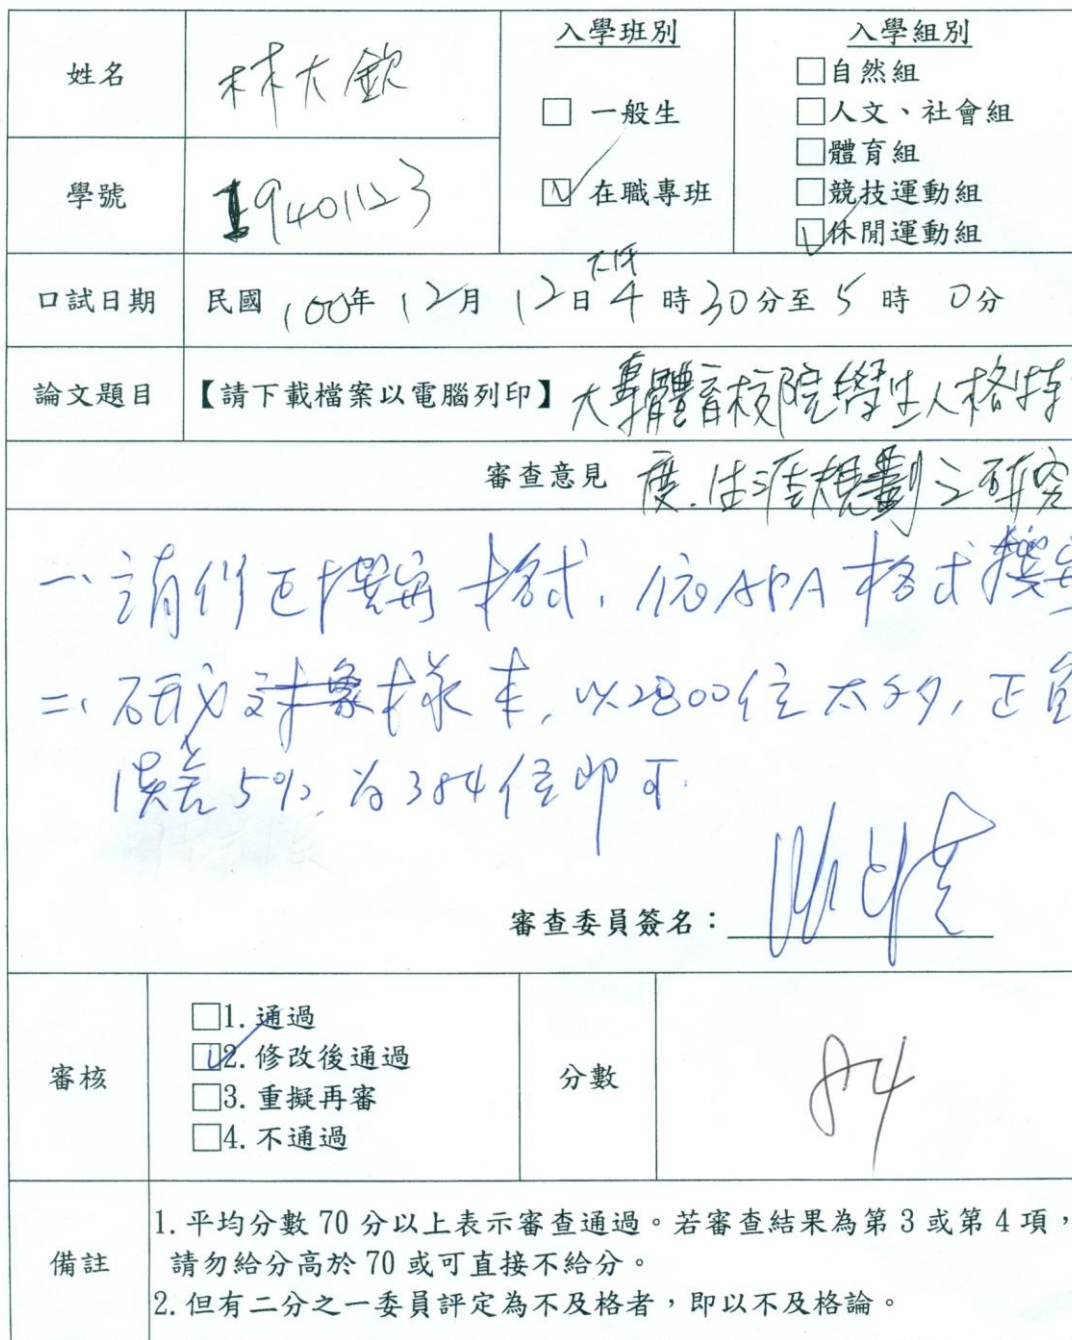 姓名 林大欽
入學班別
□ 一般生
☑ 在職專班
入學組別
□自然組
□人文、社會組
□體育組
□競技運動組
☑休閒運動組
學號 19401123
口試日期 民國 100年 12月 12日 下午 4 時 30分至 5 時 0分
論文題目 【請下載檔案以電腦列印】 大專體育校院學生人格特
審查意見 度.生涯規劃之研究
一、請修正撰寫格式,依APA格式撰寫
二、研究對象樣本,以2800位太多,正負
誤差5%,為384位即可.
審查委員簽名：
審核
□1.通過
☑2.修改後通過
□3.重擬再審
□4.不通過
分數 84
備註
1.平均分數 70 分以上表示審查通過。若審查結果為第 3 或第 4 項，
請勿給分高於 70 或可直接不給分。
2.但有二分之一委員評定為不及格者，即以不及格論。